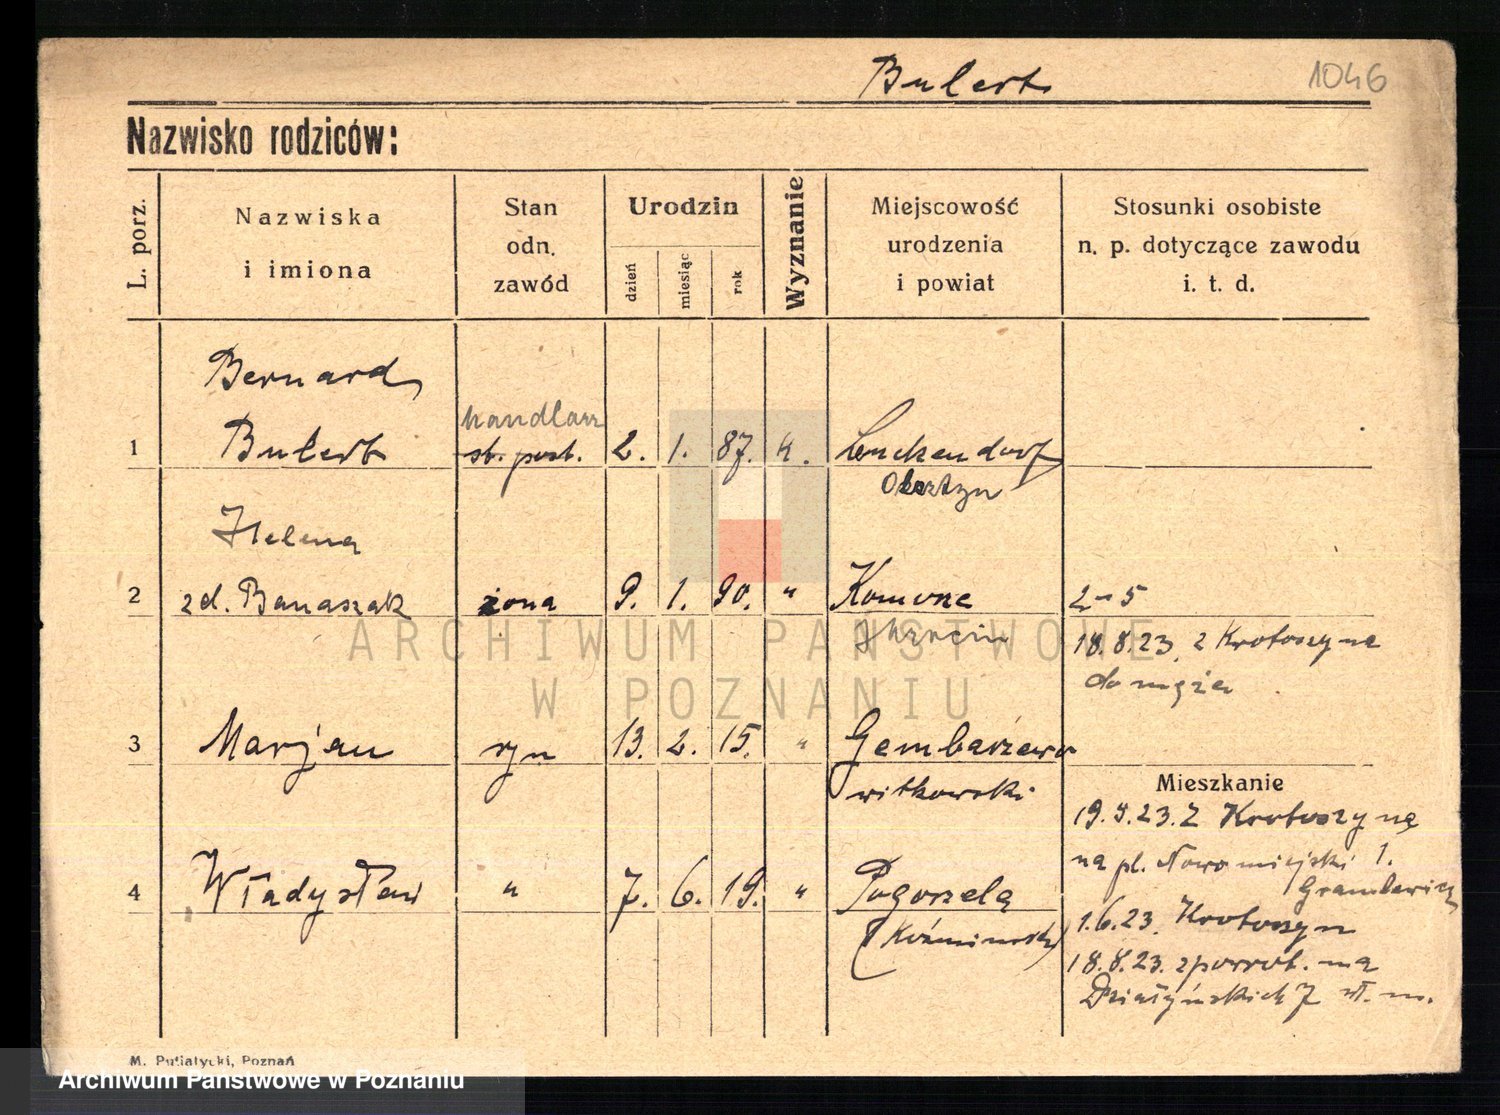 Bulert 1046
Nazwisko rodziców:
L. porz.
Nazwiska
i imiona
Stan
odn.
zawód
Urodzin
dzień
miesiąc
rok
Wyznanie
Miejscowość
urodzenia
i powiat
Stosunki osobiste
n. p. dotyczące zawodu
i. t. d.
Bernard
handlarz
1 Bulert st. post. 2. 1. 87. k.
Olsztyn
Helena
2 zd. Banaszak żona 9. 1. 90. " Komorze 2-5
18.8.23. z Krotoszyna
do męża
3 Marjan syn 13. 2. 15. " Gembarzewo
witkowski
Mieszkanie
19.5.23. Z Krotoszyna
na pl. Nowomiejski 1.
4 Władysław " 7. 6. 19. " Pogorzela
1.6.23. Krotoszyn
18.8.23. zpowrot. na
Działyńskich 7
M. Putiatycki, Poznań
ARCHIWUM PAŃSTWOWE
W POZNANIU
Archiwum Państwowe w Poznaniu